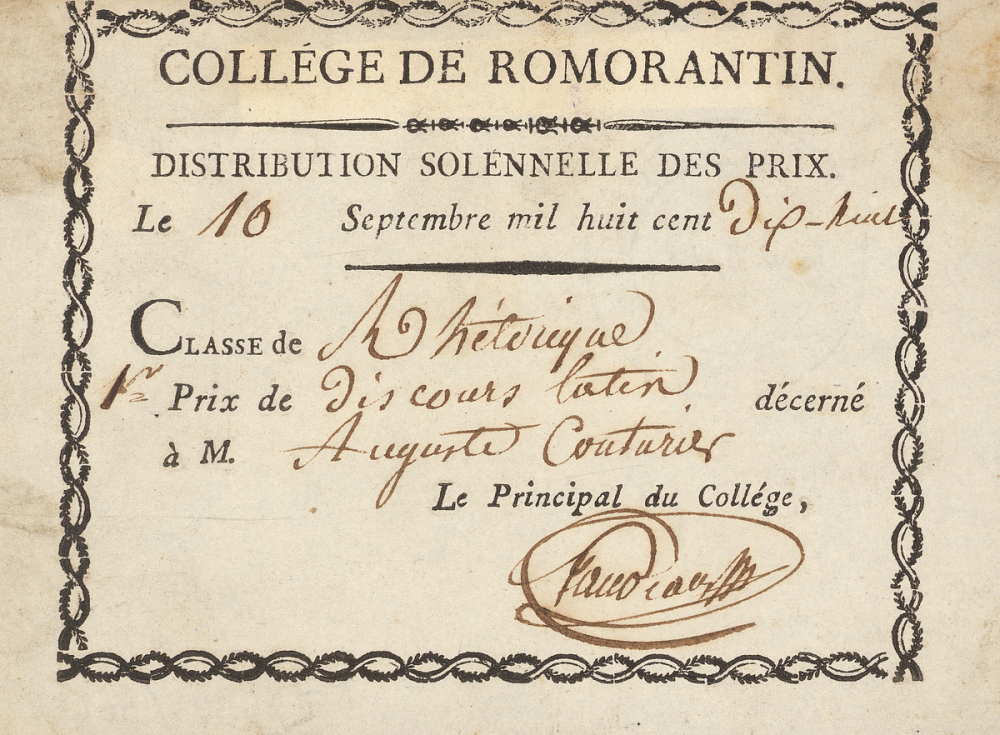 COLLÉGE DE ROMORANTIN.
DISTRIBUTION SOLENNELLE DES PRIX.
Le 10 Septembre mil huit cent Dix-huit
CLASSE de Rhétorique
1er Prix de Discours latin décerné
à M. Auguste Couturier
Le Principal du Collége,